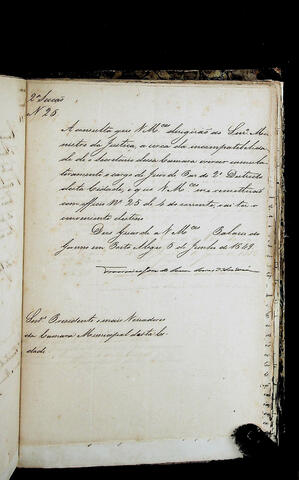 2ª Secção
N 25
A consulta que V Mces dirigirão ao Senr. Mi
nistro da Justiça, a cerca da incompatibilidade
de o Secretario dessa Camara exercer cumula
tivamente o cargo de Juiz de Paz do 2º Districto
desta Cidade, e que V Mces me remetterão
com officio Nº 25 de 4 do corrente, vai ter o
conveniente destino
Deos Guarde a V Mces Palacio do
Governo em Porto Alegre 5 de Junho de 1849.
Senr. Presidente e mais Vereadores
da Camara Municipal desta Ci
dade